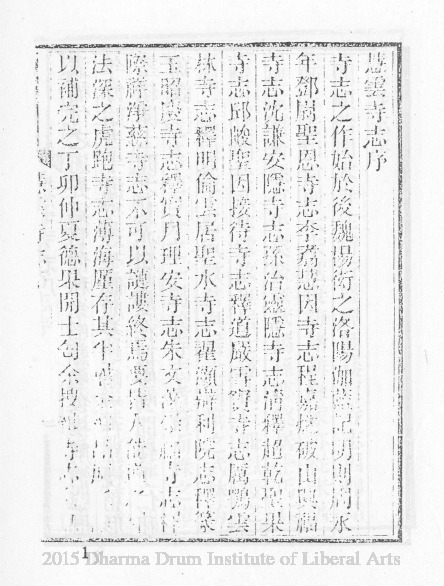 慧雲寺志序
寺志之作始於後魏楊衒之洛陽伽藍記明則周永
年鄧尉聖恩寺志李翥慧因寺志程嘉燧破山興福
寺志沈謙安隱寺志孫治靈隱寺志淸釋超乾聖果
寺志邱峻聖因接待寺志釋道嚴雪竇寺志厲鶚雲
林寺志釋明倫雲居聖水寺志翟灝辯利院志釋篆
玉昭慶寺志釋實月理安寺志朱文藻
際祥淨慈寺志不可以謰謱終焉要皆
法深之虎跑寺志溥海塵存其
以補完之丁卯仲夏德杲開士勾余搜
1
2015 Dharma Drum Institute of Liberal Arts